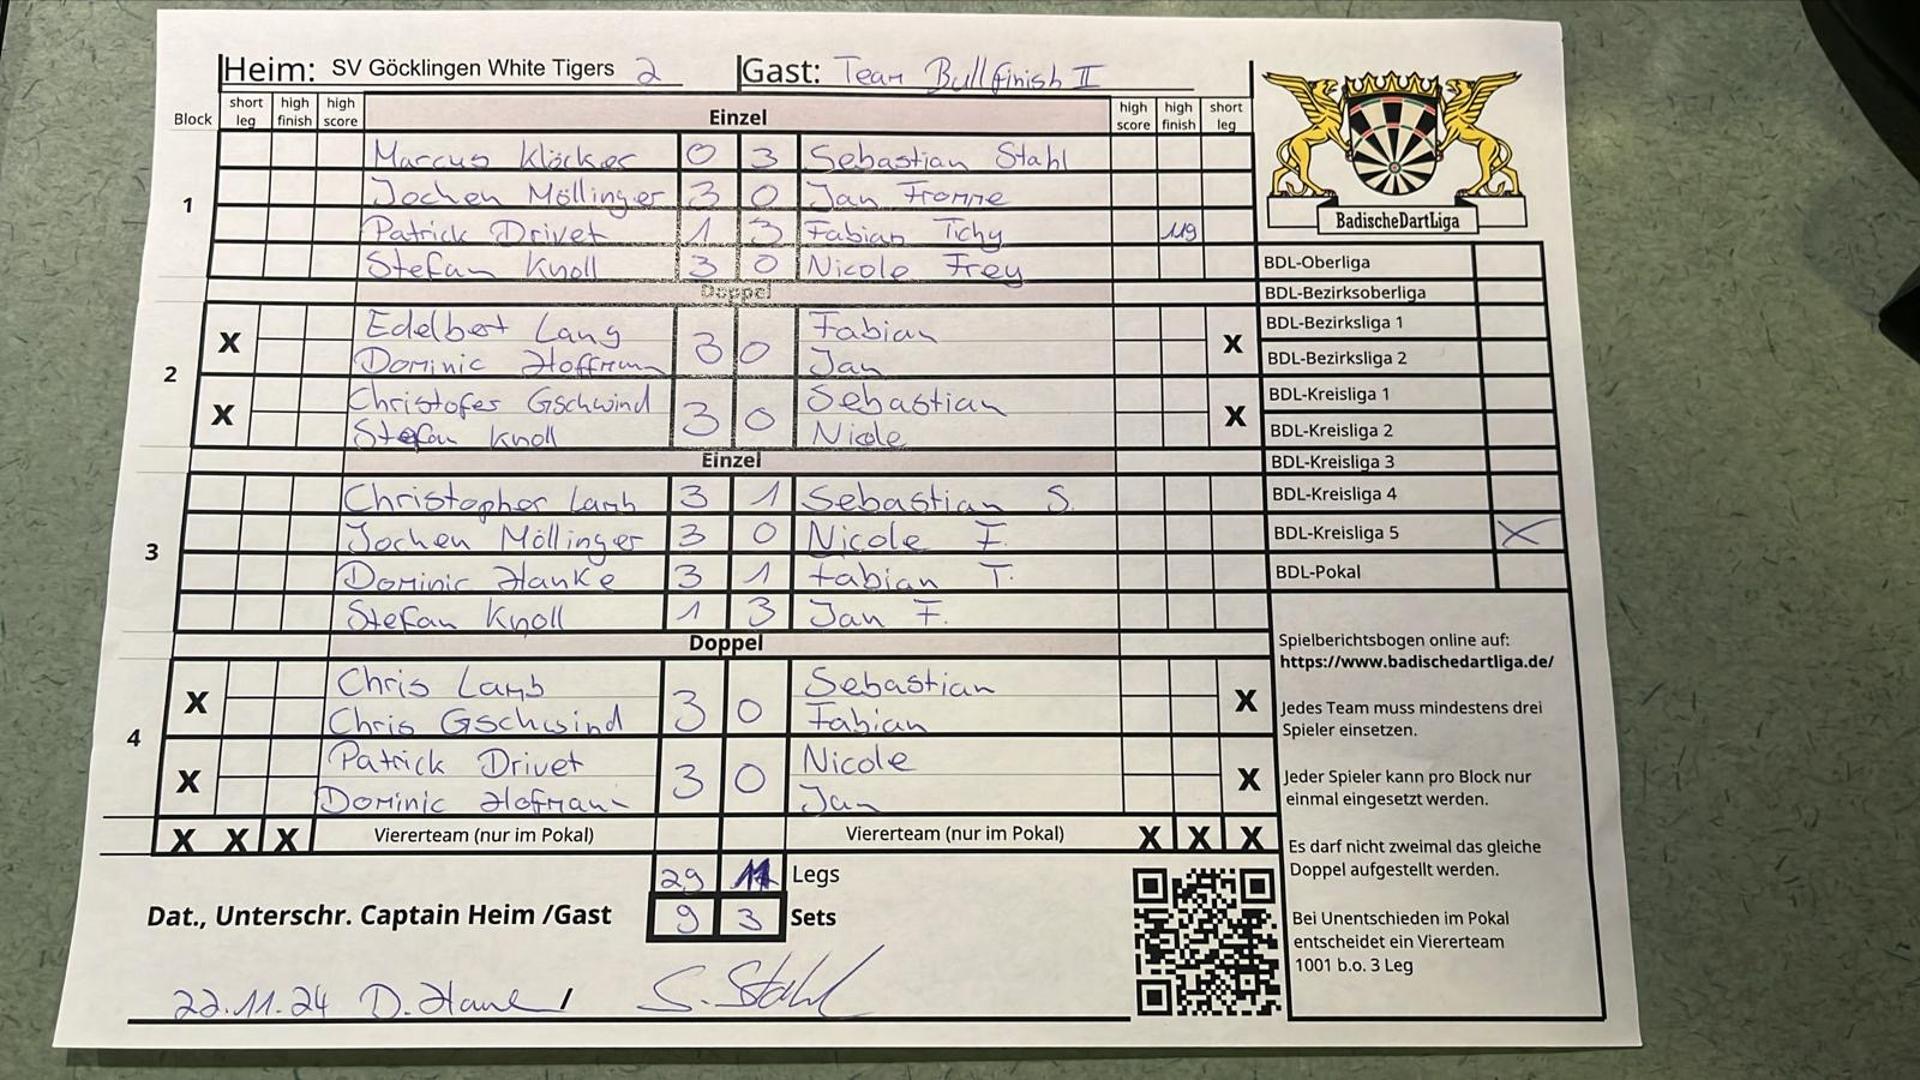 Heim: SV Göcklingen White Tigers 2 Gast: Team Bullfinish II
Block short leg high finish high score Einzel high score high finish short leg
1
Marcus Klöcker 0 3 Sebastian Stahl
Jochen Möllinger 3 0 Jan Fromme
Patrick Drivet 1 3 Fabian Tichy 119
Stefan Knoll 3 0 Nicole Frey
Doppel
2
X Edelbert Lang 3 0 Fabian X
Dominic Hoffmann Jan
X Christofer Gschwind 3 0 Sebastian X
Stefan Knoll Nicole
Einzel
3
Christopher Lamb 3 1 Sebastian S.
Jochen Möllinger 3 0 Nicole F.
Dominic Hanke 3 1 Fabian T.
Stefan Knoll 1 3 Jan F.
Doppel
4
X Chris Lamb 3 0 Sebastian X
Chris Gschwind Fabian
X Patrick Drivet 3 0 Nicole X
Dominic Hofmann Jan
X X X Viererteam (nur im Pokal) Viererteam (nur im Pokal) X X X
29 11 Legs
Dat., Unterschr. Captain Heim /Gast 9 3 Sets
22.11.24 D. / S. Stahl
BadischeDartLiga
BDL-Oberliga
BDL-Bezirksoberliga
BDL-Bezirksliga 1
BDL-Bezirksliga 2
BDL-Kreisliga 1
BDL-Kreisliga 2
BDL-Kreisliga 3
BDL-Kreisliga 4
BDL-Kreisliga 5 X
BDL-Pokal
Spielberichtsbogen online auf:
https://www.badischedartliga.de/
Jedes Team muss mindestens drei
Spieler einsetzen.
Jeder Spieler kann pro Block nur
einmal eingesetzt werden.
Es darf nicht zweimal das gleiche
Doppel aufgestellt werden.
Bei Unentschieden im Pokal
entscheidet ein Viererteam
1001 b.o. 3 Leg